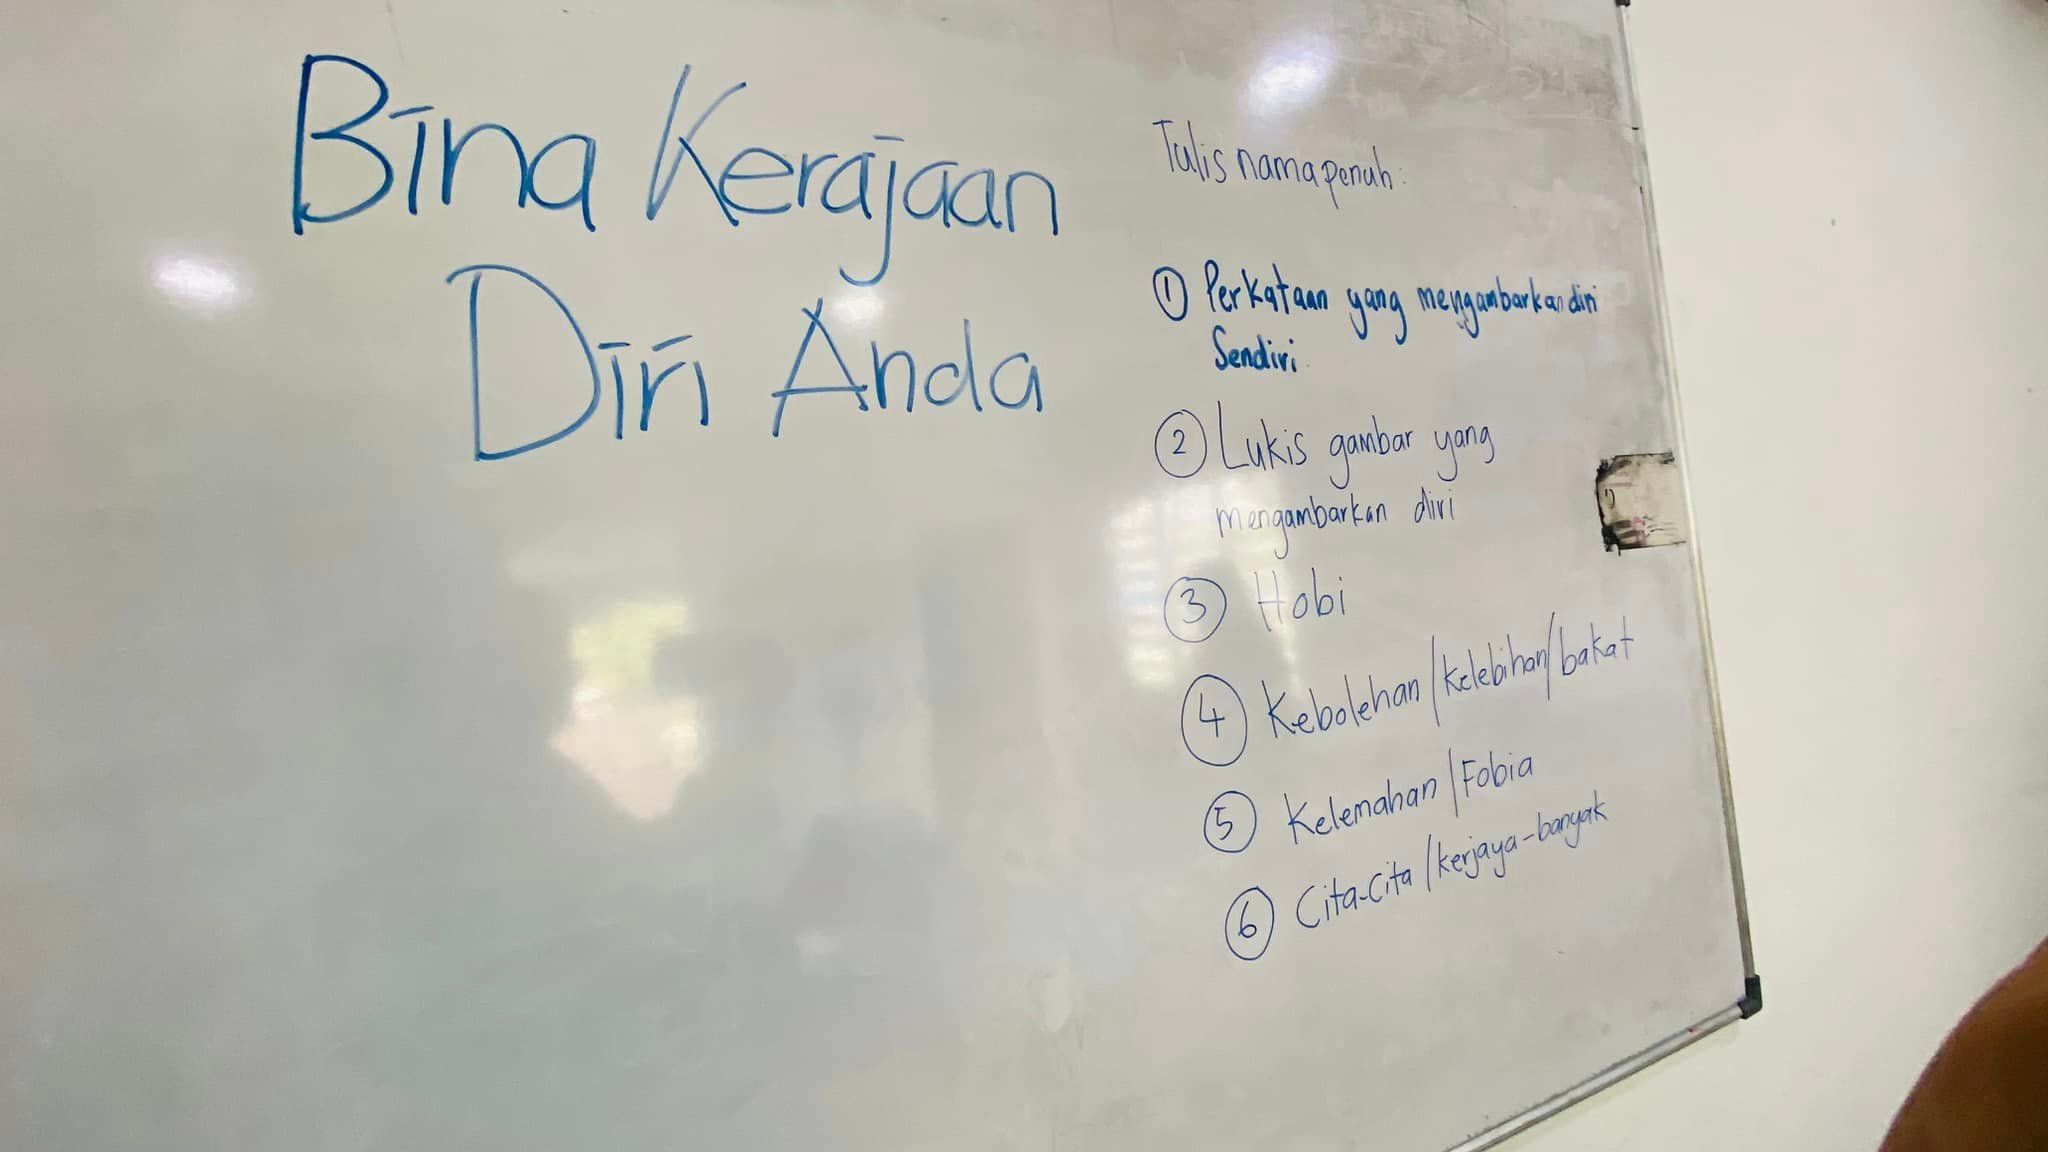 Bina Kerajaan
Diri Anda
Tulis nama penuh:
① Perkataan yang mengambarkan diri
Sendiri.
② Lukis gambar yang
mengambarkan diri
③ Hobi
④ Kebolehan/kelebihan/bakat
⑤ Kelemahan/Fobia
⑥ Cita-Cita/kerjaya-banyak